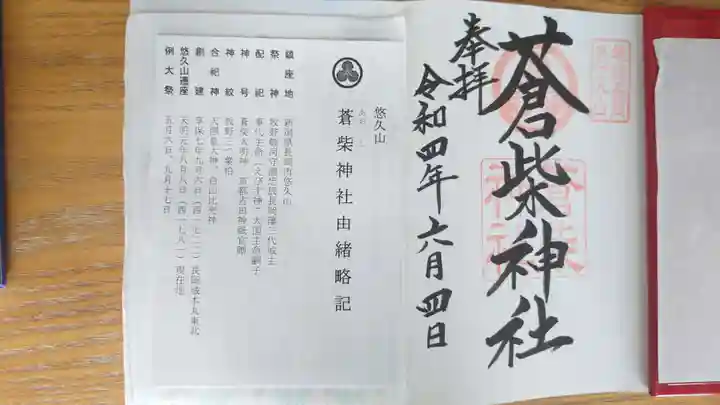 蒼柴神社
奉拝
令和四年六月四日
悠久山
蒼柴神社由緒略記
鎮座地 新潟県長岡市悠久山
祭神 牧野駿河守源忠辰長岡藩三代城主
配祀 事代主命（えびす神・大国主命嗣子
神号 蒼柴大明神 京都吉田神祇官贈
神紋 牧野三ツ葉柏
合祀神
創建 享保七年九月六日（西一七二二）長岡城本丸東北
悠久山遷座 天明元年八月八日（西一七八一）現在地
例大祭 五月六日、九月十七日